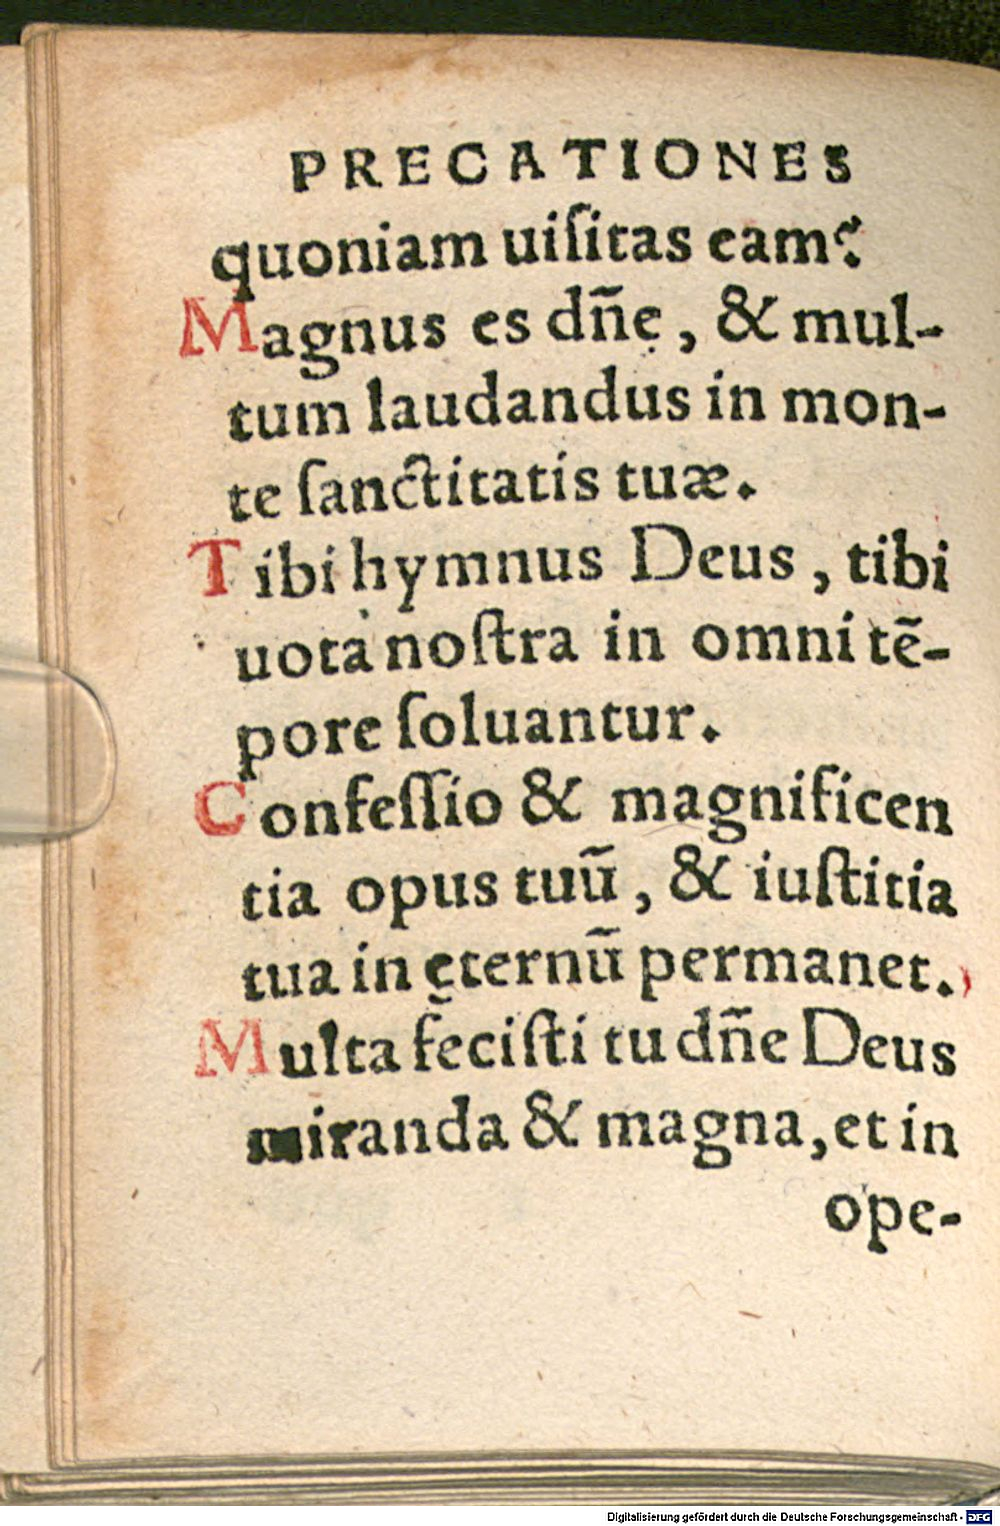 PRECATIONES
quoniam uiſitas eam?
Magnus es dn̄e, & mul-
tum laudandus in mon-
te ſanctitatis tuæ.
Tibi hymnus Deus, tibi
uota noſtra in omni tē-
pore ſoluantur.
Confeſſio & magnificen
tia opus tuū, & iuſtitia
tua in ęternū permanet.
Multa feciſti tu dn̄e Deus
miranda & magna, et in
ope-
Digitalisierung gefördert durch die Deutsche Forschungsgemeinschaft - DFG